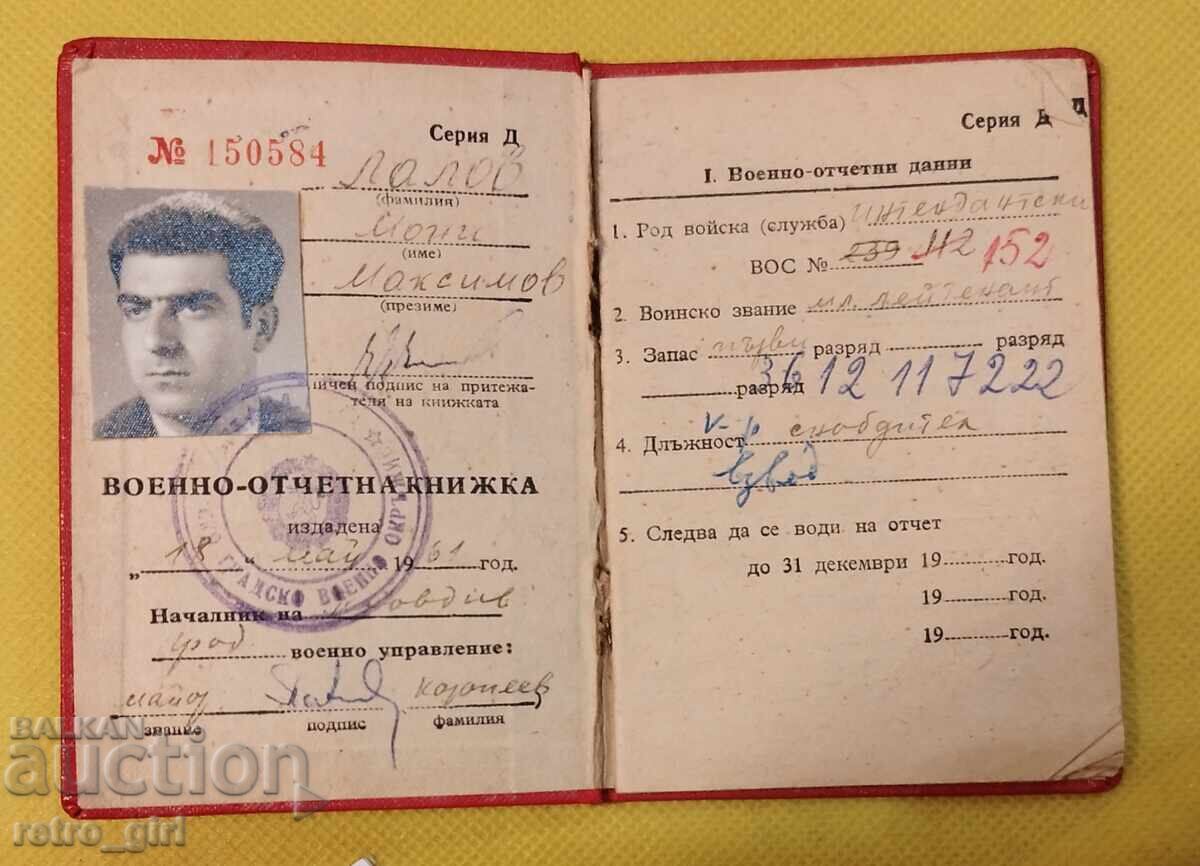 Серия Д
№ 150584
Лалов
(фамилия)
Мони
(име)
Максимов
(презиме)
личен подпис на притежа-
теля на книжката
ВОЕННО-ОТЧЕТНА КНИЖКА
издадена
„18“ май 1961 год.
Началник на Пловдив
град военно управление:
майор
звание подпис фамилия
ГРАДСКО ВОЕННО ОКРЪЖИЕ
Серия Д
I. Военно-отчетни данни
1. Род войска (служба) Интендантски
ВОС № 239 112 152
2. Воинско звание мл. лейтенант
3. Запас първи разряд разряд
разряд 36 12 117222
4. Длъжност к-р снабдител
взвод
5. Следва да се води на отчет
до 31 декември 19 год.
19 год.
19 год.
BALKAN
auction
retro_girl